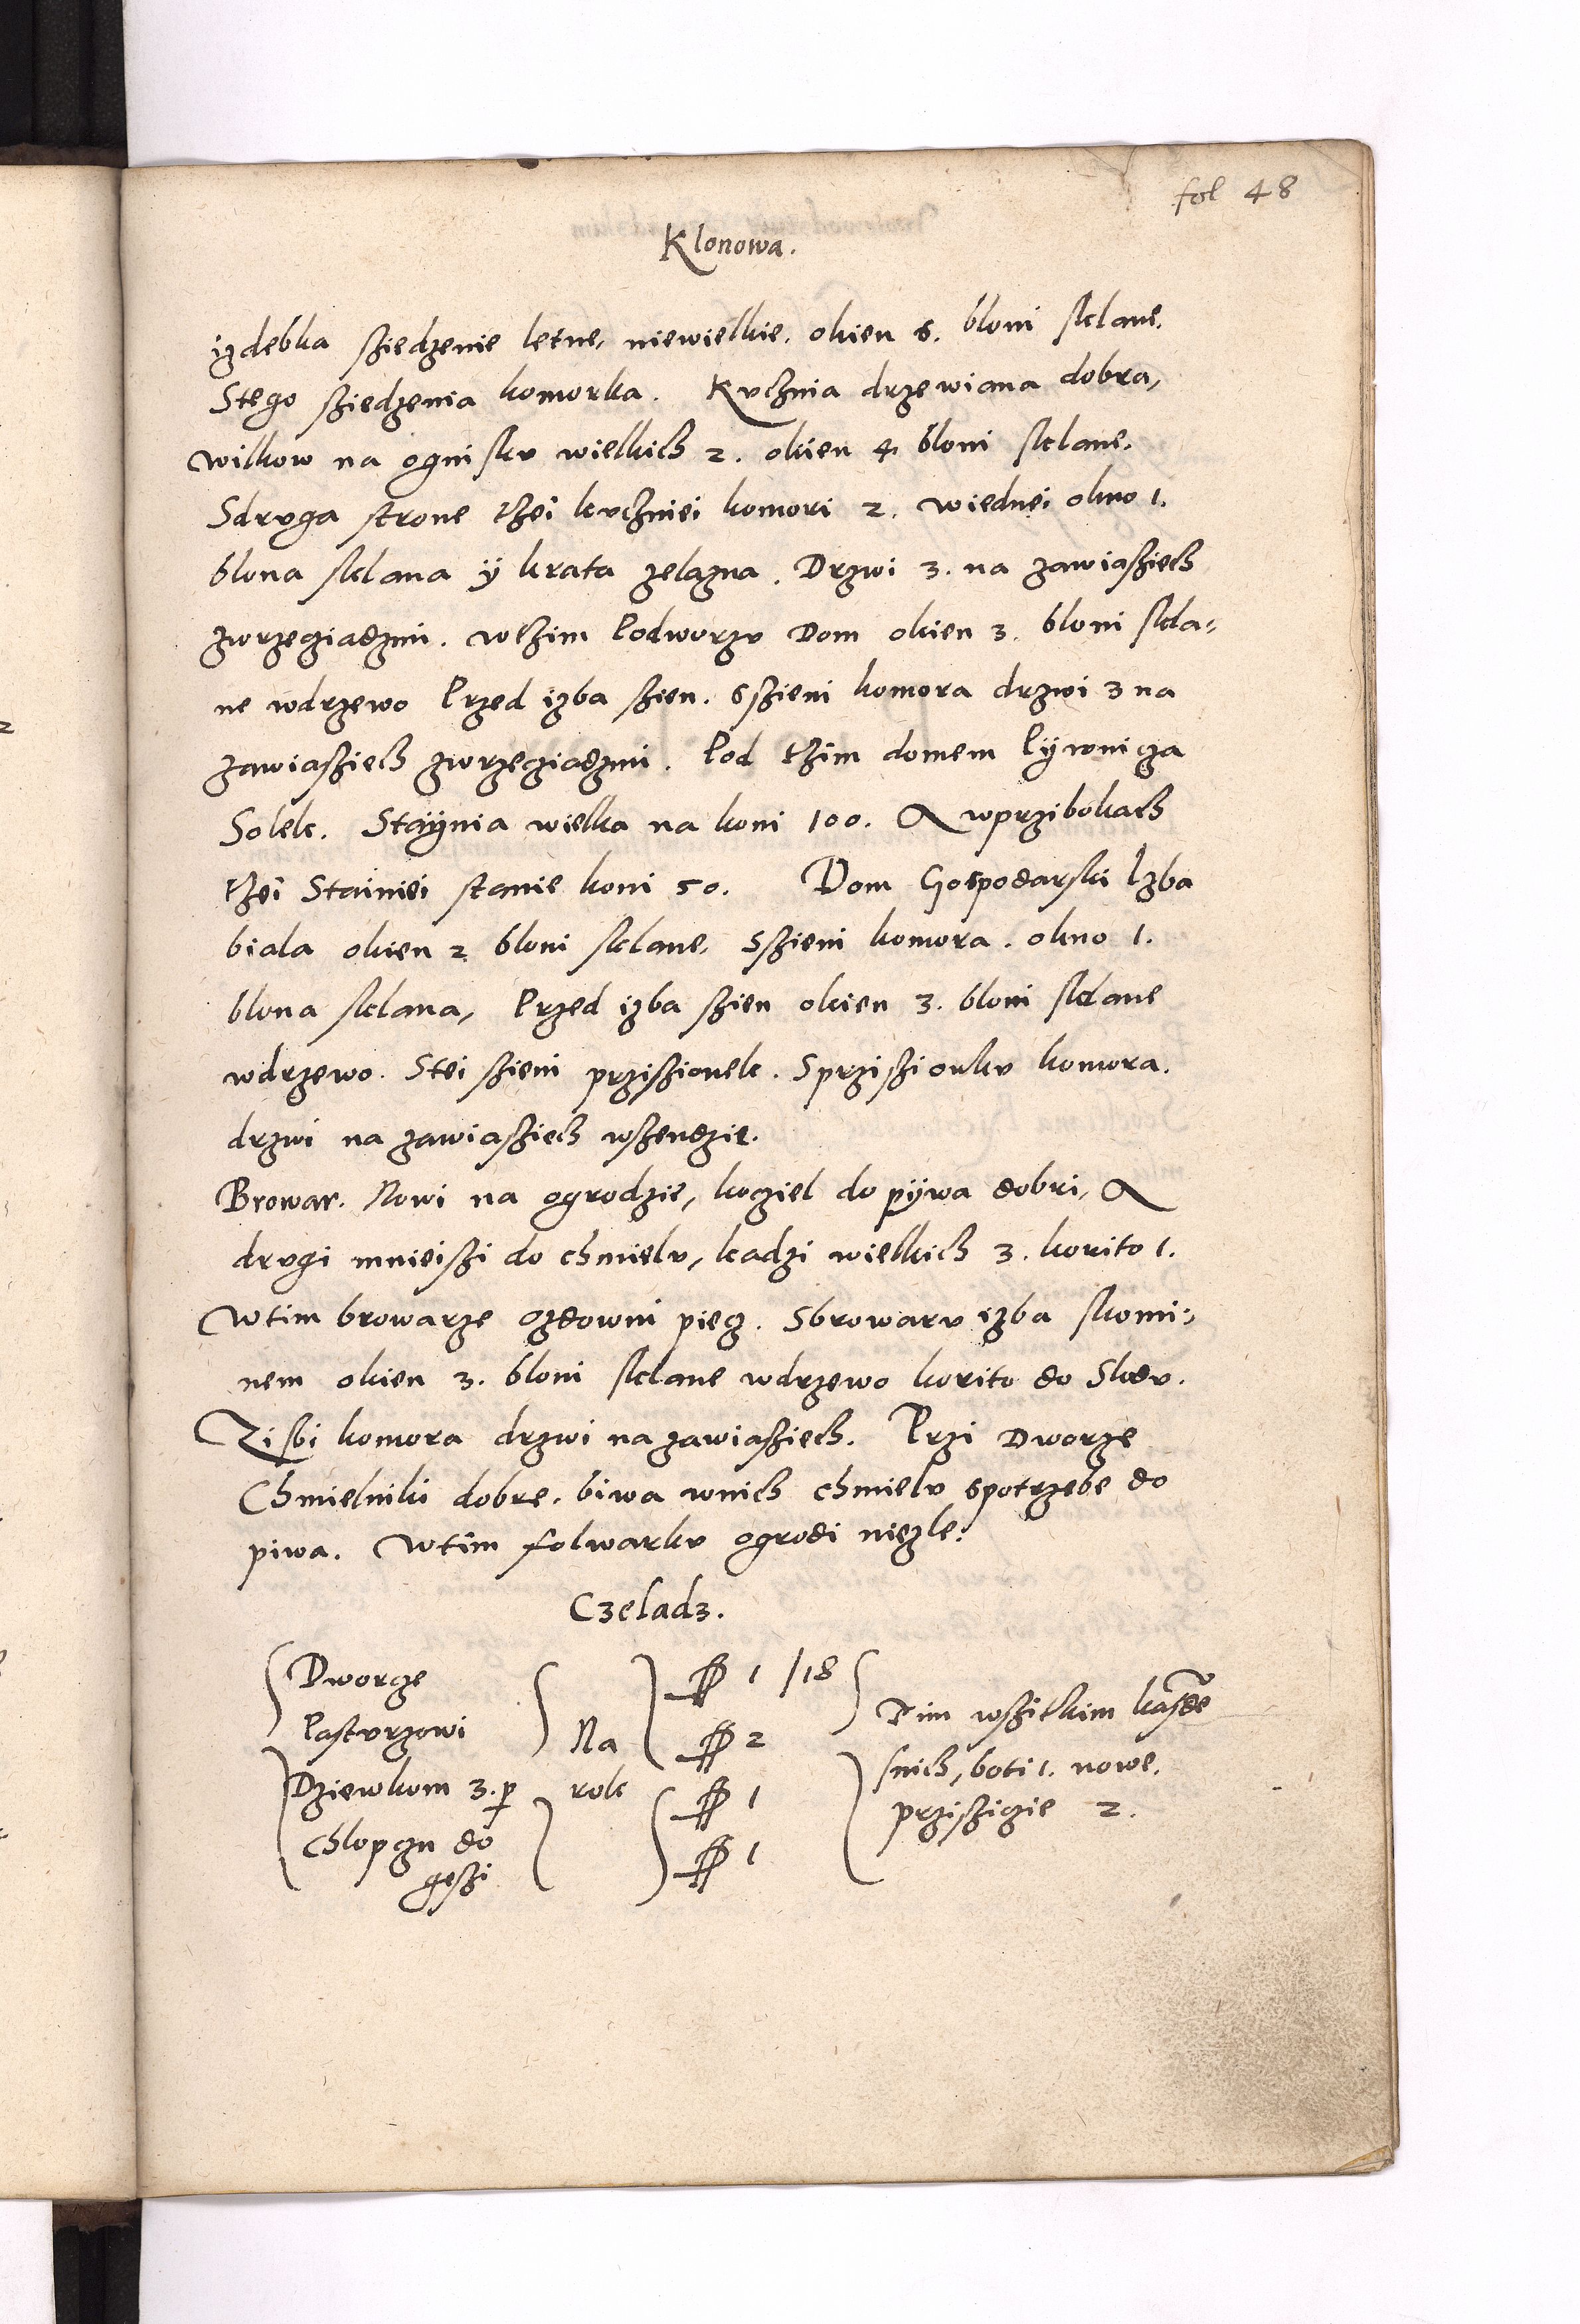 fol 48
Klonowa.
izdebka sziedzenie letne, niewielkie. okien 6. bloni sklane.
Stego sziedzenia komorka. Kvchnia drzewiana dobra,
wilkow na ogniskv wielkich 2. okien 4 bloni sklane.
Sdrvga strone tzei kvchniei komori 2. wiednei okno 1.
blona sklana ÿ krata zelazna. Drzwi 3. na zawiasziech
zwrzeciadzmi. wtzim Podworzv Dom okien 3. bloni skla=
ne wdrzewo Przed izba szien. Sszieni komora drzwi 3 na
zawiasziech zwrzeciadzmi. Pod tzim domem Pÿwnicza
Solek. Staÿnia wielka na koni 100. A wprzibokach
tzei Stainiei stanie koni 50. Dom Gospodarski Izba
biala okien 2 bloni sklane, Sszieni komora. okno 1.
blona sklana, Przed izba szien okien 3. bloni sklane
wdrzewo. Stei szieni prziszionek. Sprziszionkv komora.
drzwi na zawiasziech wszendzie.
Browar. Nowi na ogrodzie, kocziel do pÿwa dobri, A
drvgi mnieiszi do chmielv, kadzi wielkich 3. korito 1.
Wtim browarze ozdowni piecz. Sbrowarv izba skomi=
nem okien 3. bloni sklane wdrzewo korito do Slodv.
Zisbi komora drzwi na zawiasziech. Przi Dworze
Chmielniki dobre. biwa wnich chmielv spotrzebe do
piwa. Wtim folwarkv ogrodi niezle.
Czeladz.
Dworce 1 /18
Pastvrzowi Na 2
Dziewkom 3. rok 1
Chlopczu do 1
geszi
Tim wszitkim kasde
snich, boti 1. nowe.
przisziczie 2.